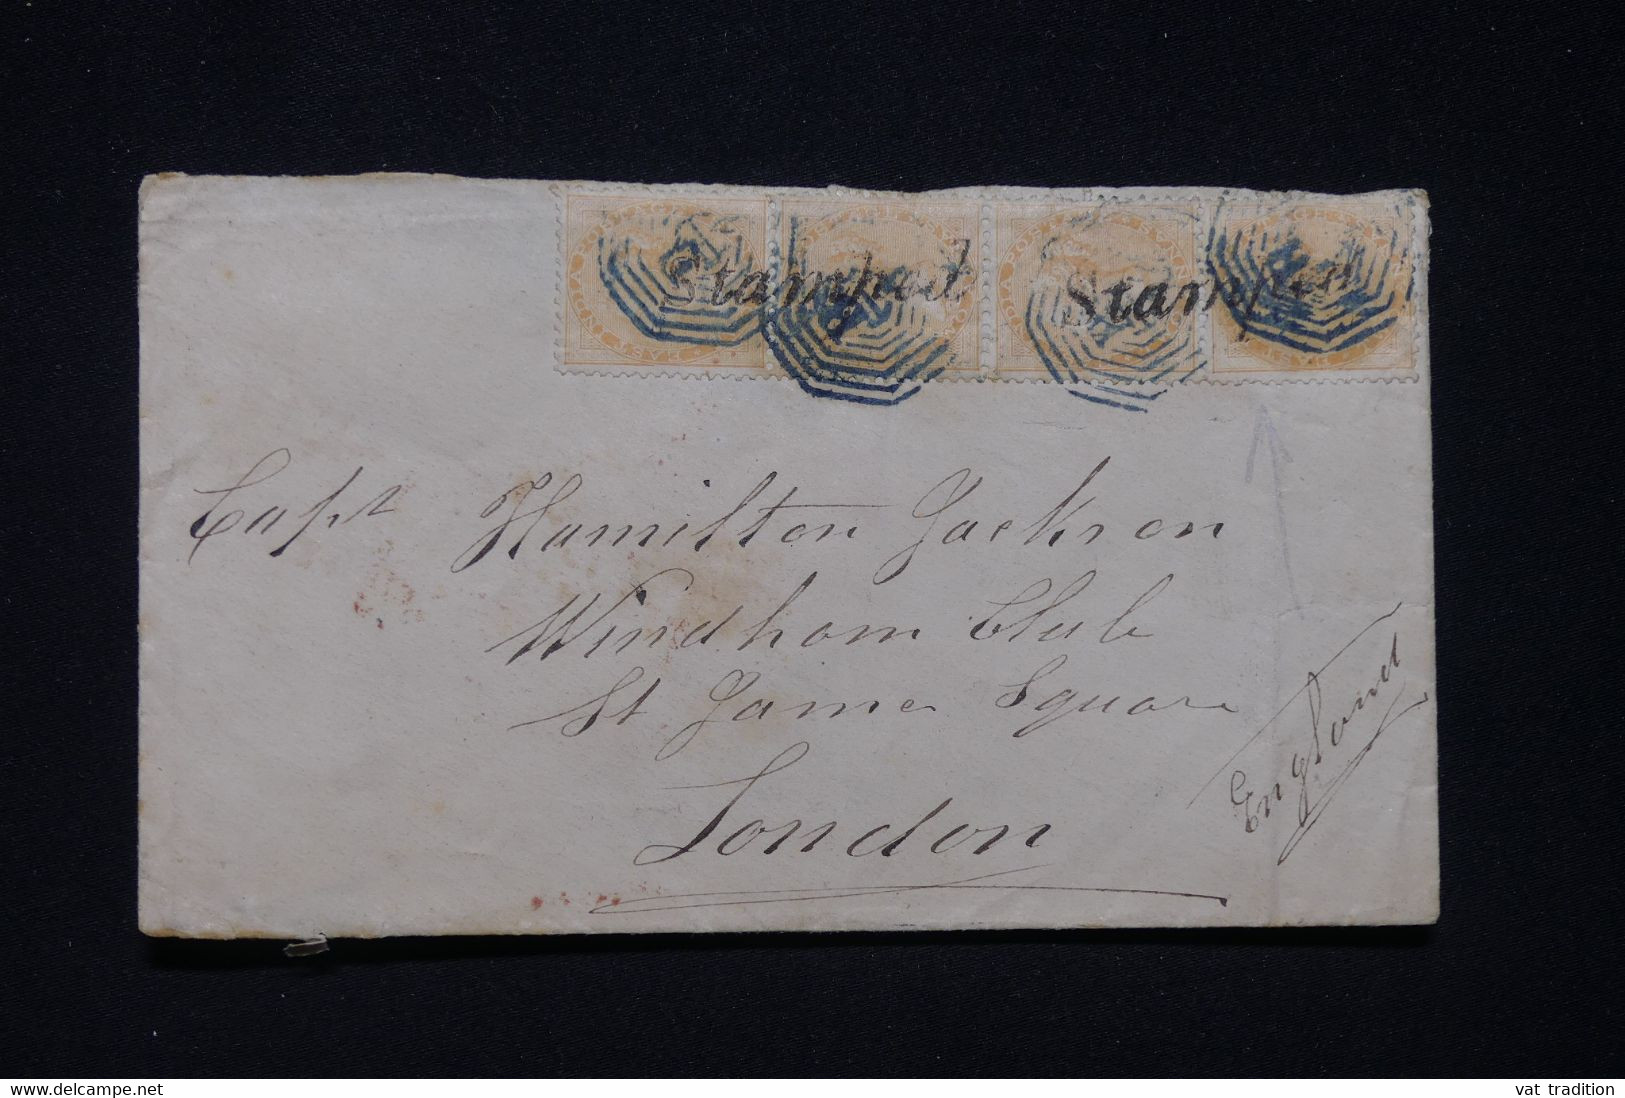 Stamped Stamped
Capt Hamilton Jackson
Windham Club
St James Square
London
England
delcampe.net
vat_tradition